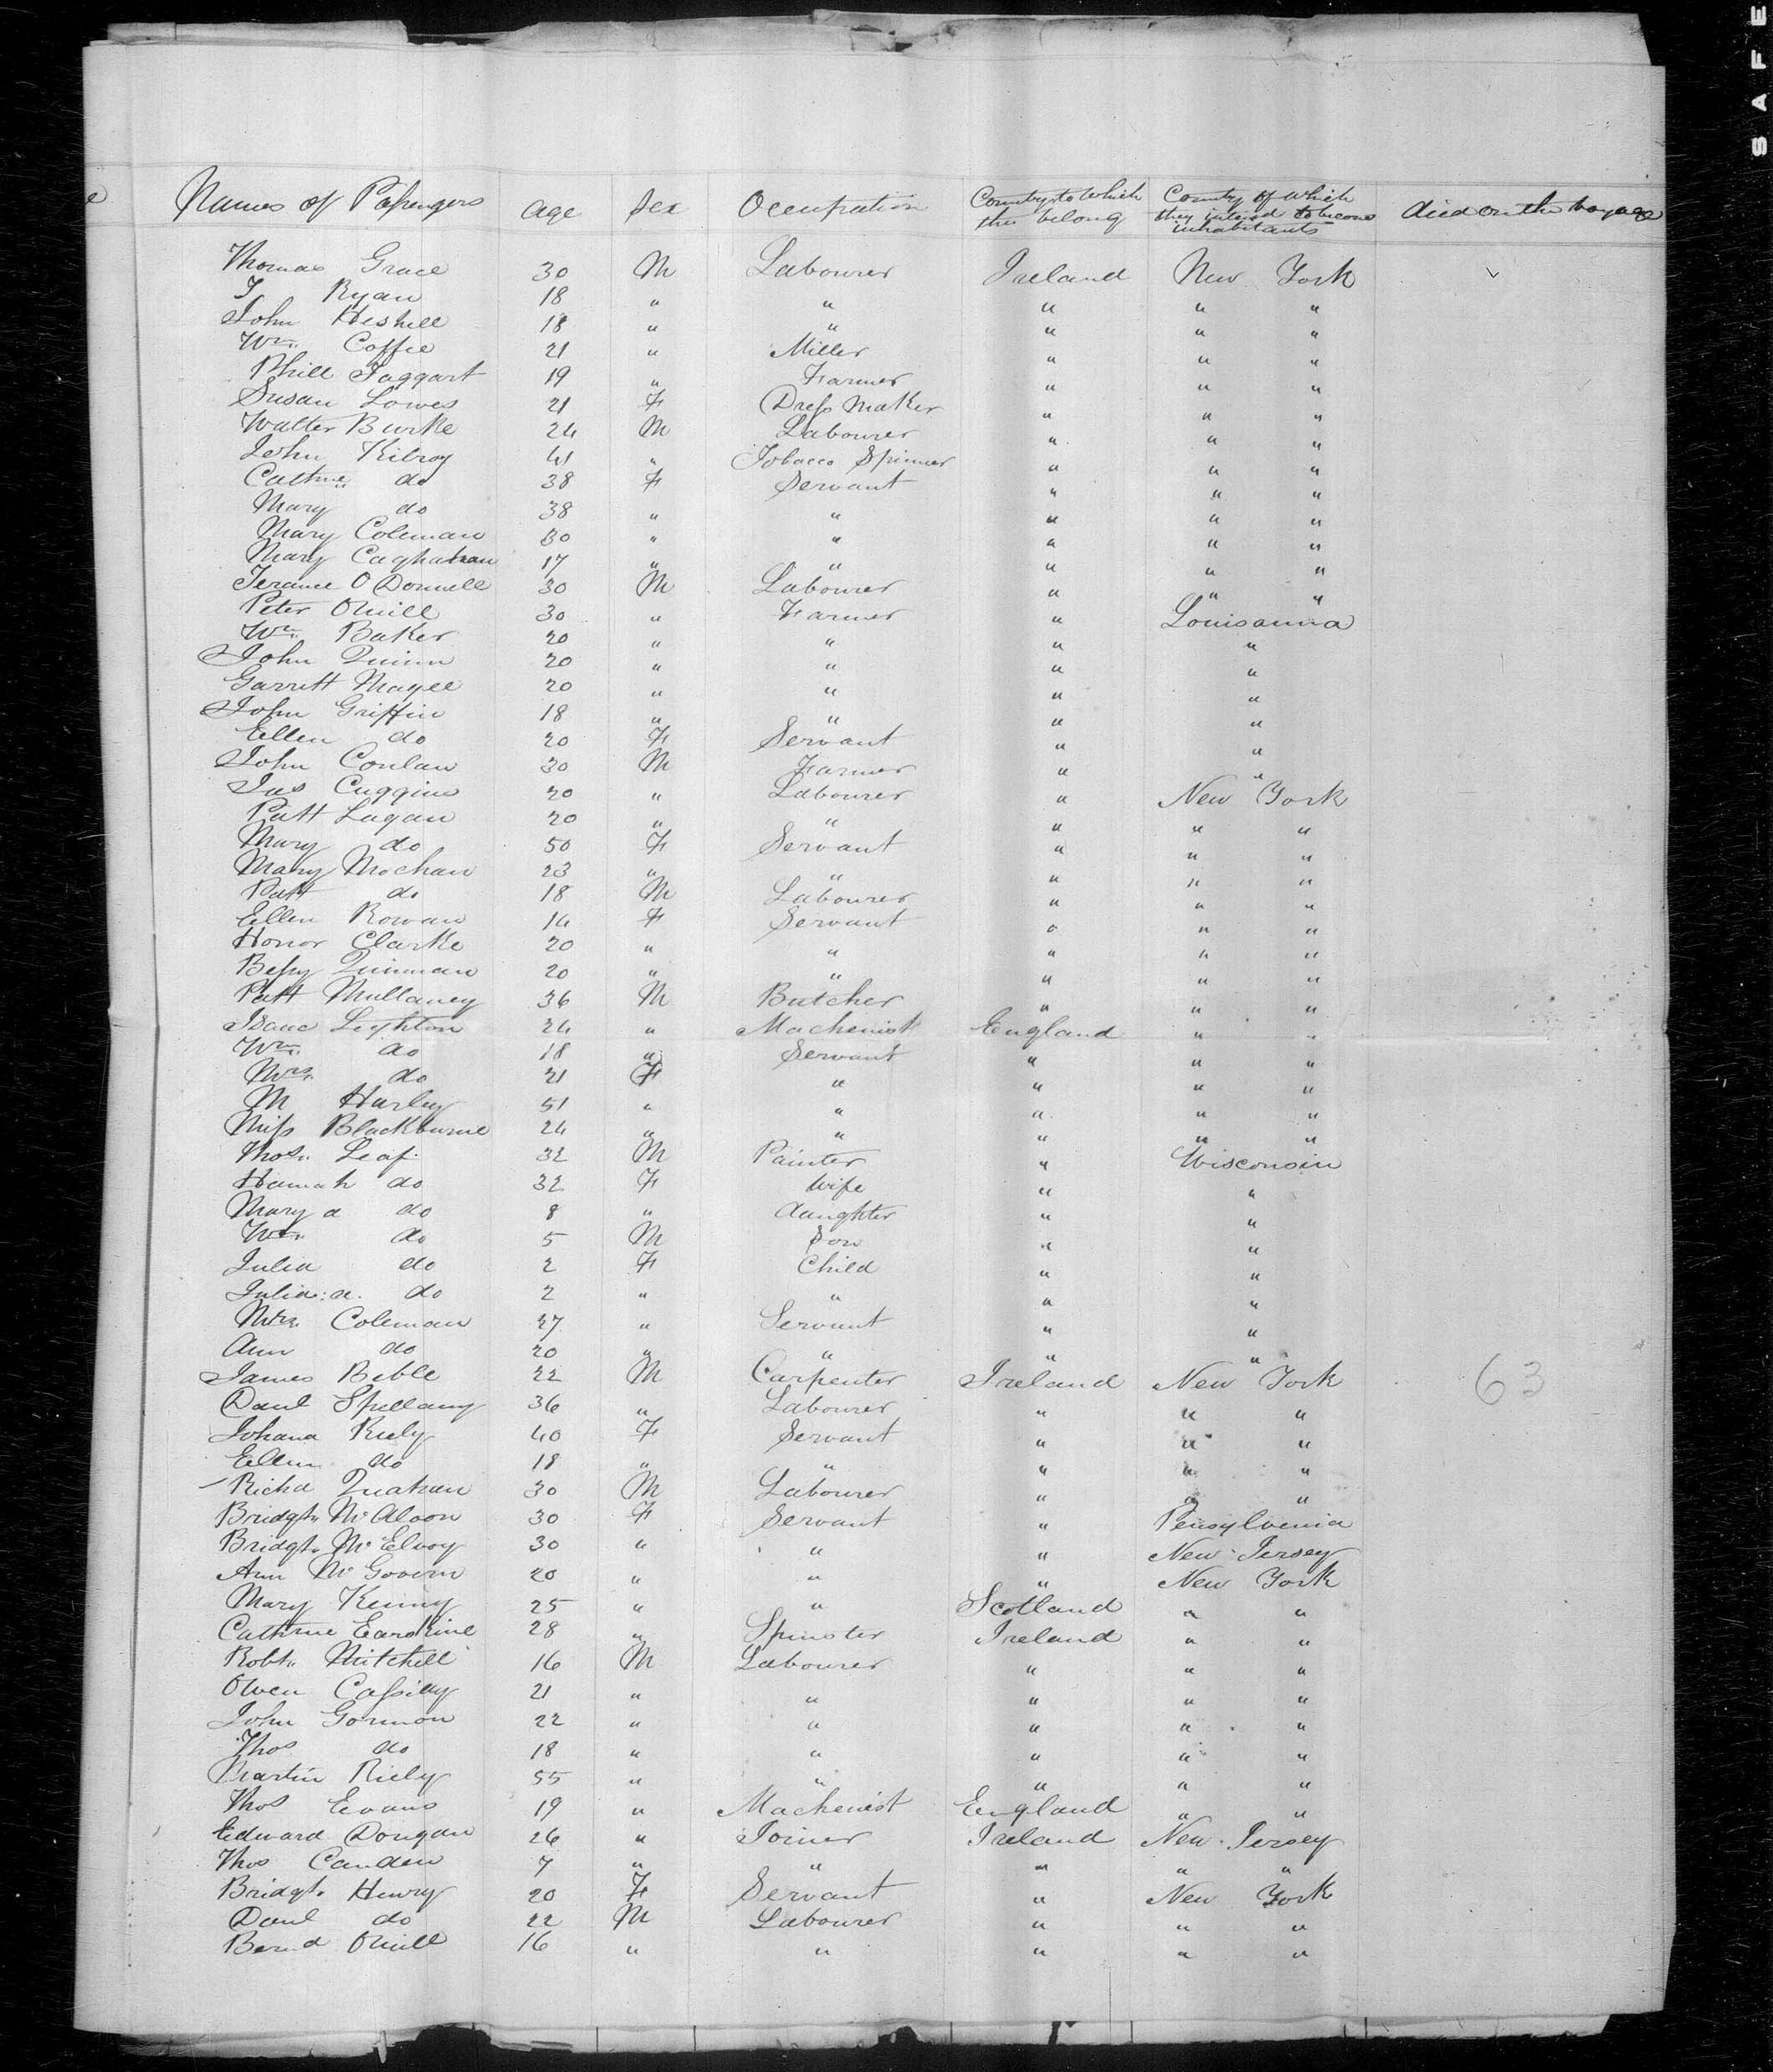 SAFE
e Names of Passengers Age Sex Occupation Country to Which the belong Country of which they intend to become inhabitants died on the voyage
Thomas Grace 30 M Labourer Ireland New York
T Ryan 18 " " " " "
John Heskell 18 " " " " "
Wm. Coffee 21 " Miller " " "
Phill Taggart 19 " Farmer " " "
Susan Lowes 21 F Dress Maker " " "
Walter Burke 24 M Labourer " " "
John Kilroy 41 " Tobacco Spinner " " "
Cathne do 38 F Servant " " "
Mary do 38 " " " " "
Mary Coleman 30 " " " " "
Mary 17 " " " " "
Terance O Donnell 30 M Labourer " " "
Peter ONeill 30 " Farmer " Louisanna
Wm. Baker 20 " " " "
John Quinn 20 " " " "
Garrett Magee 20 " " " "
John Griffin 18 " " " "
Ellen do 20 F Servant " "
John Conlan 30 M Farmer " "
Jas Cuggins 20 " Labourer " New York
Patt Lagan 20 " " " " "
Mary do 50 F Servant " " "
Mary Mochan 23 " " " " "
Patt do 18 M Labourer " " "
Ellen Rowan 14 F Servant " " "
Honor Clarke 20 " " " " "
Bessy 20 " " " " "
Patt Mullaney 36 M Butcher " " "
Isaac Leighton 24 " Machenist England " "
Wm. do 18 " Servant " " "
Mrs. do 21 F " " " "
M Hurley 51 " " " " "
Miss Blackburne 24 " " " " "
Thos. Leaf 32 M Painter " Wisconsin
Hannah do 32 F Wife " "
Mary a do 8 " daughter " "
Wm. do 5 M Son " "
Julia do 2 F Child " "
Julia: a. do 2 " " " "
Mrs. Coleman 27 " Servant " "
Ann do 20 " " " "
James Beble 22 M Carpenter Ireland New York 63
Danl Spellany 36 " Labourer " " "
Johana Riely 40 F Servant " " "
Ellen do 18 " " " " "
Richd 30 M Labourer " " "
Bridgt. McAloon 30 F Servant " Pensylvenia
Bridgt. McElvoy 30 " " " New Jersey
Ann McGovern 20 " " " New York
Mary Kenny 25 " " Scotland " "
Cathrine 28 " Spinster Ireland " "
Robt. Mitchell 16 M Labourer " " "
Owen Cassidy 21 " " " " "
John Gormon 22 " " " " "
Thos do 18 " " " " "
Martin Riely 55 " " " " "
Thos Evans 19 " Machenist England " "
Edward Dougan 26 " Joiner Ireland New Jersey
Thos Camden 7 " " " " "
Bridgt. Henry 20 F Servant " New York
Danl do 22 M Labourer " " "
Bernd ONeill 16 " " " " "